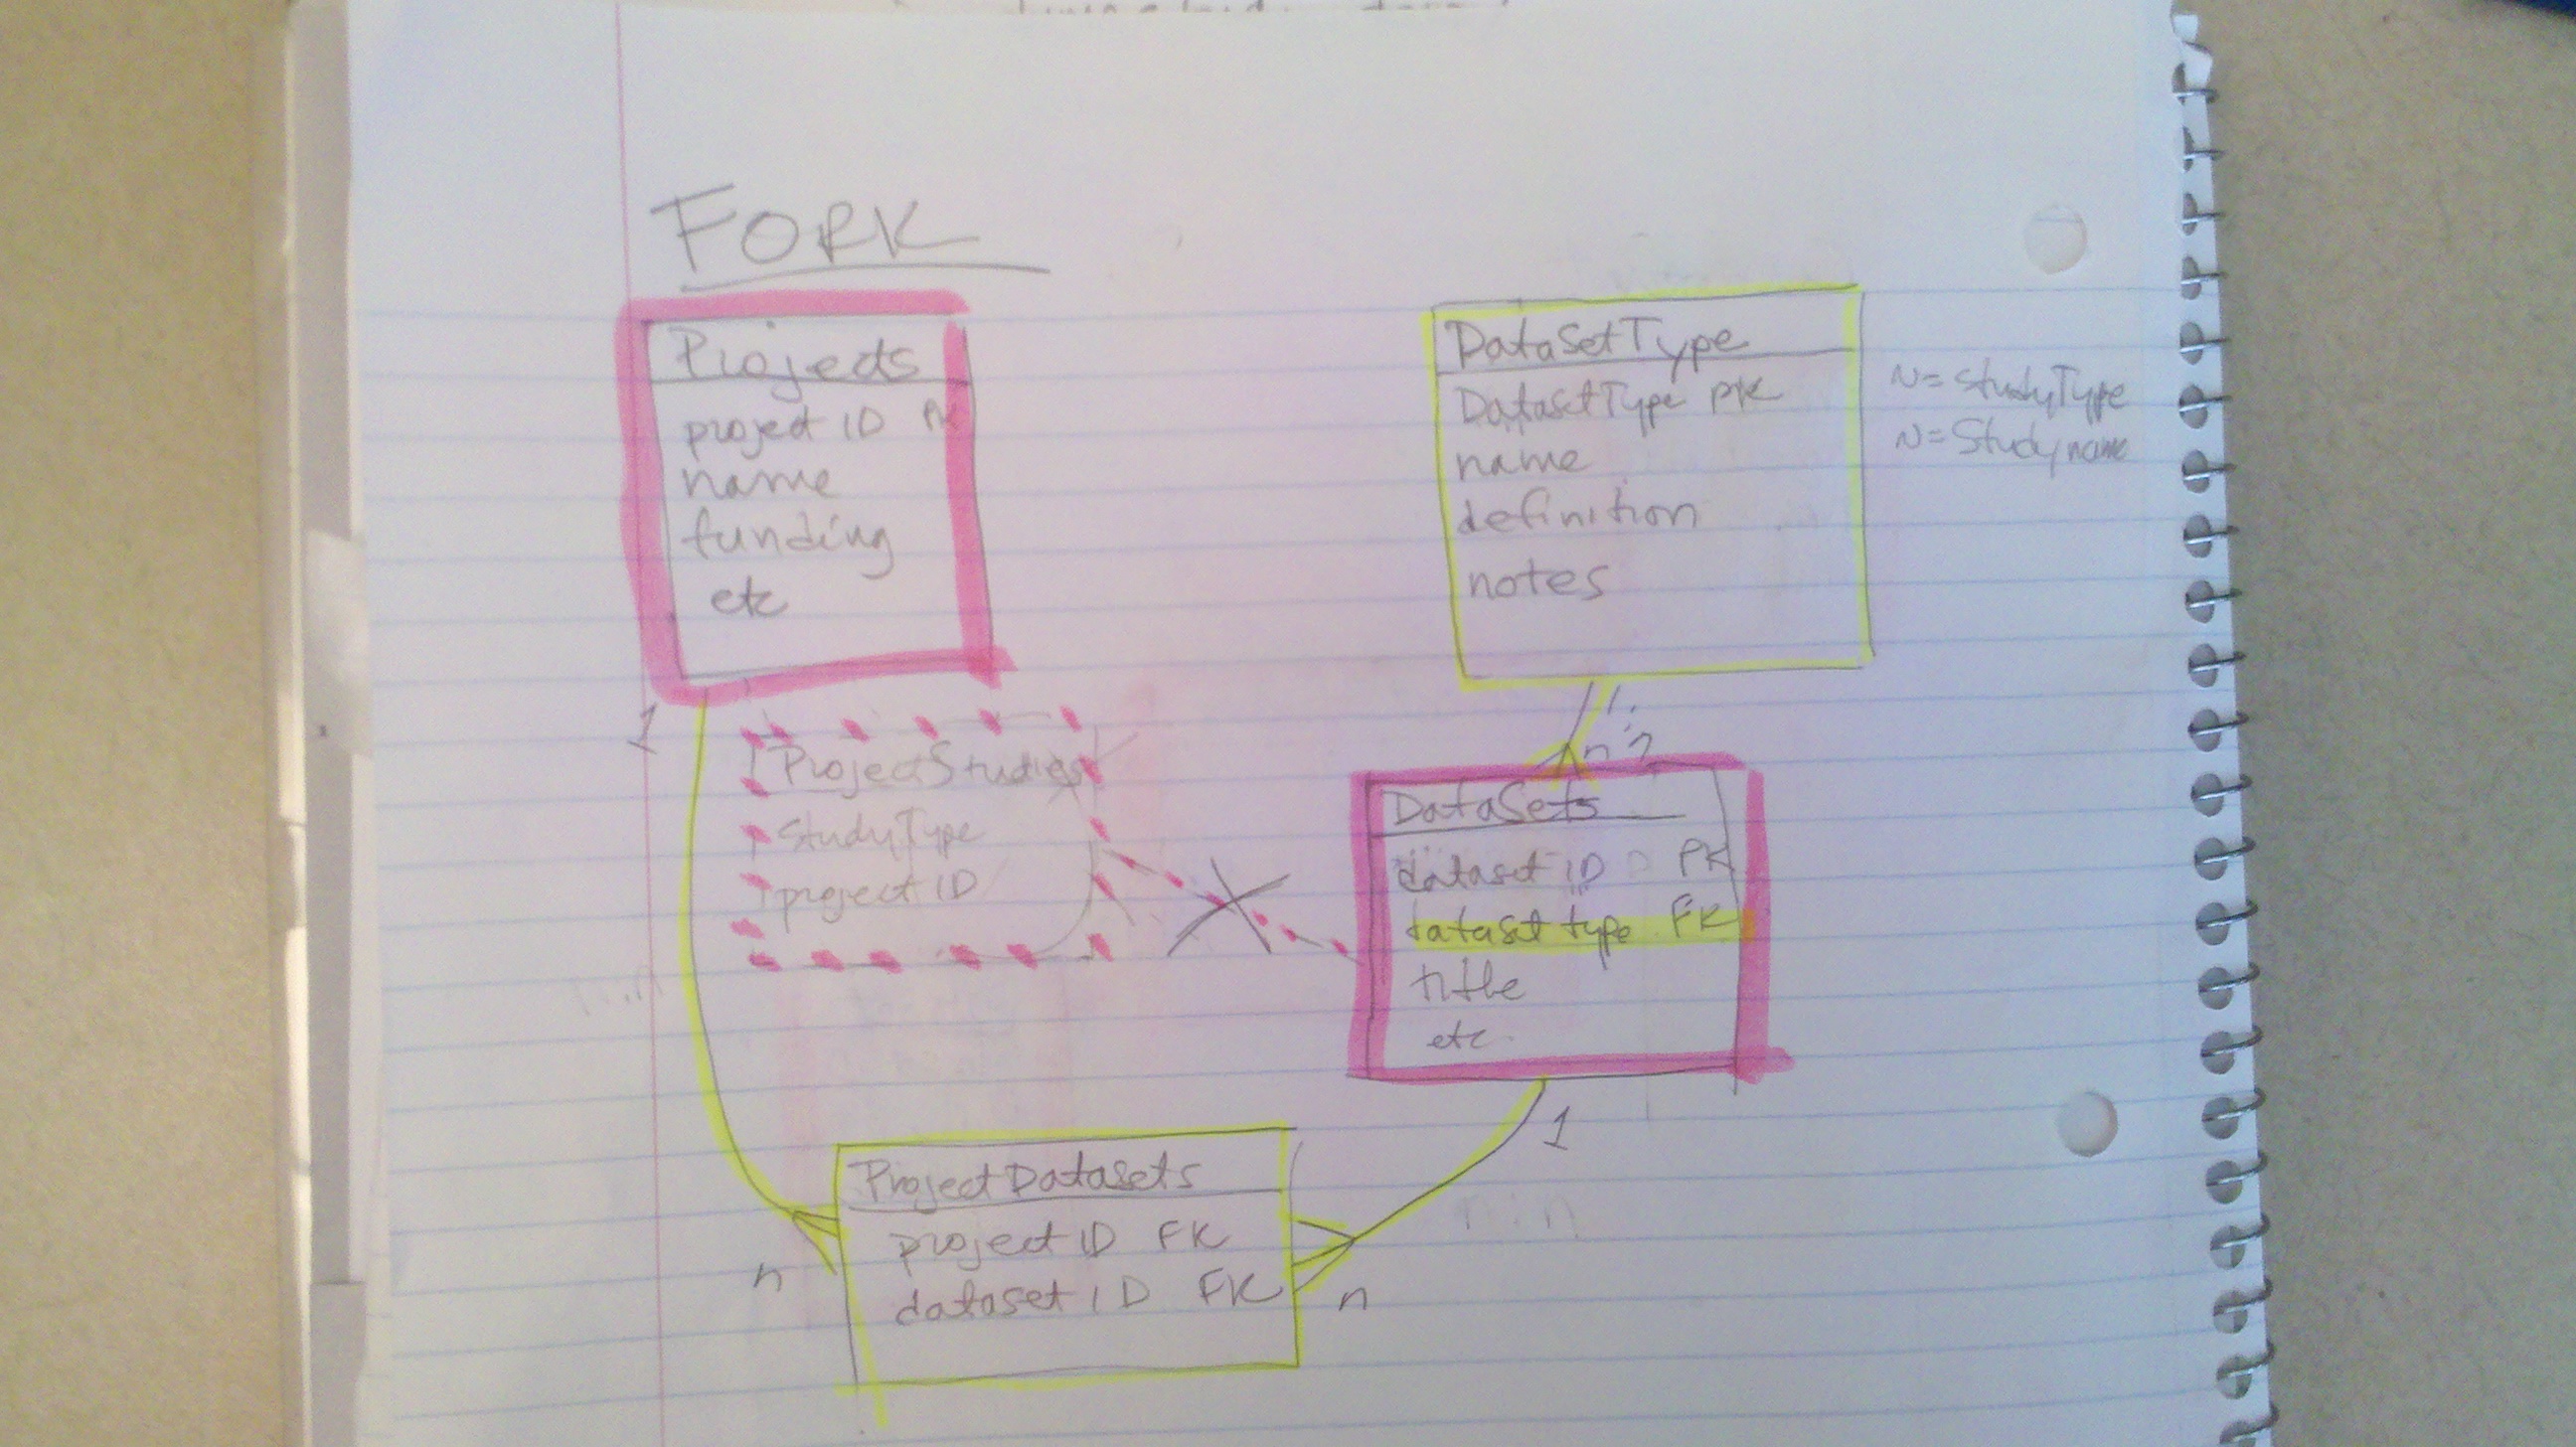 FORK
Projects
project ID PK
name
funding
etc
DataSetType
DatasetType PK
name
definition
notes
N= studyType
N= Studyname
1
1
n?
ProjectStudies
StudyType
project ID
DataSets
dataset ID PK
dataset type FK
title
etc.
1
ProjectDatasets
project ID FK
dataset ID FK
n
n